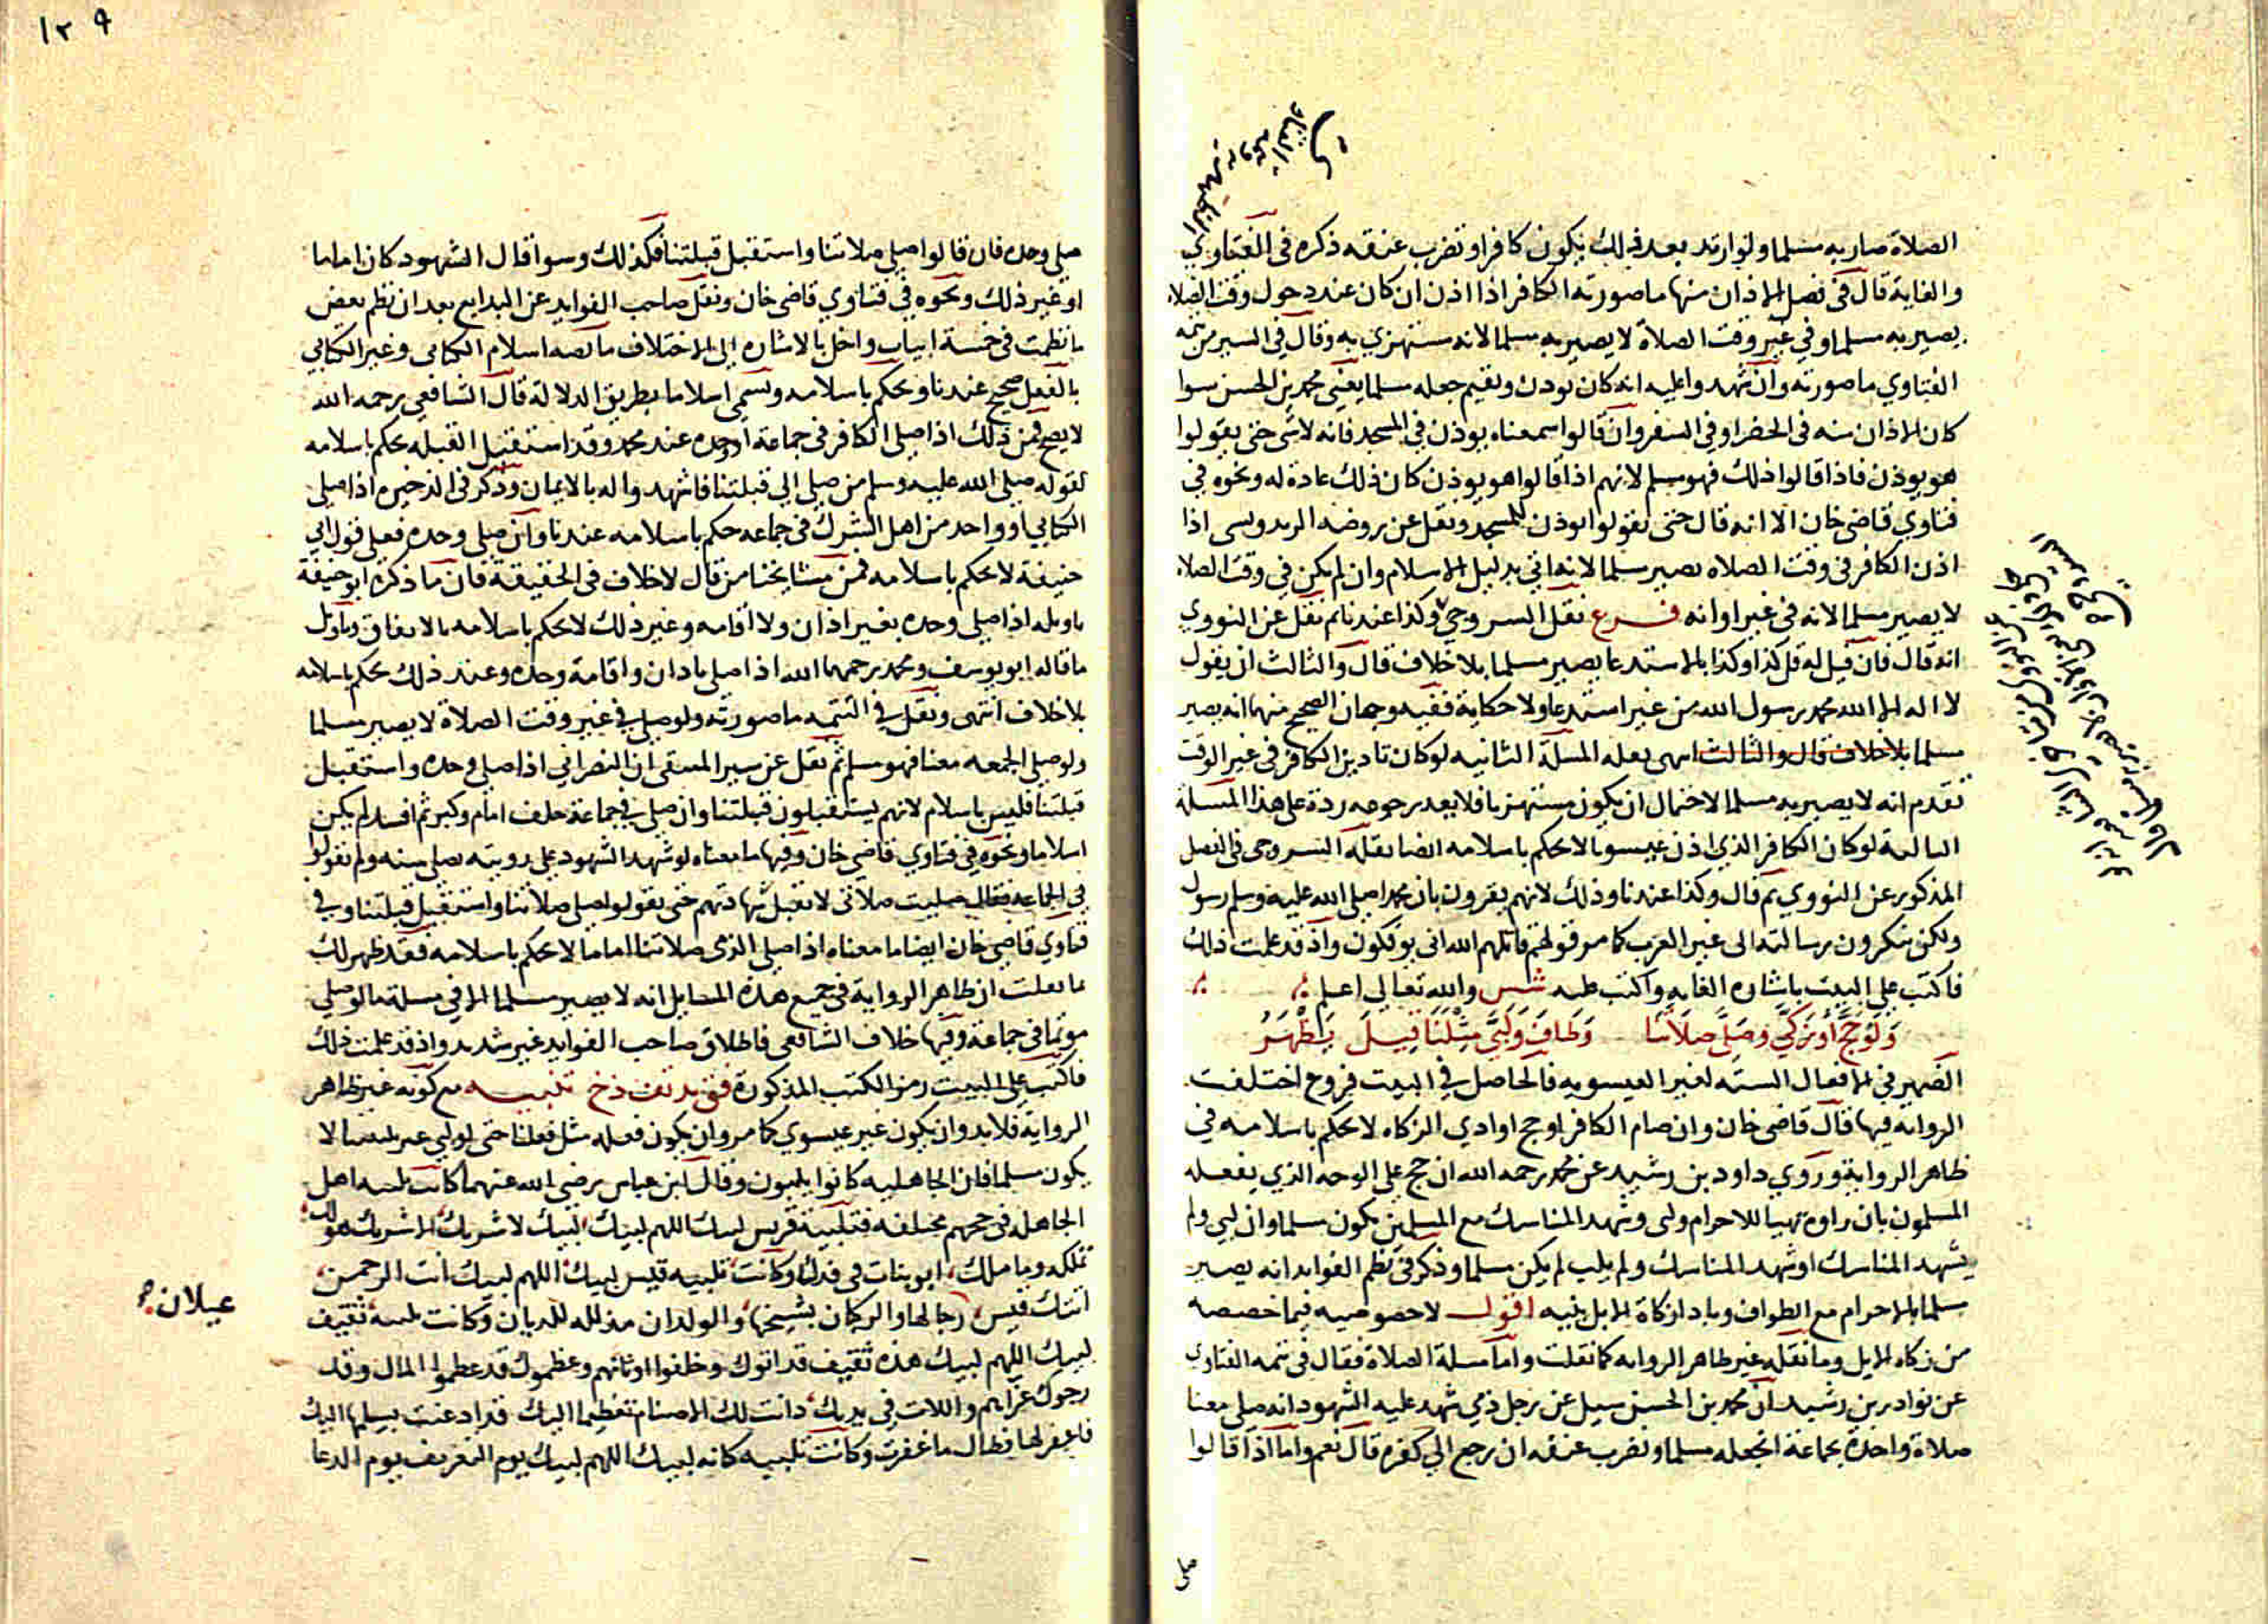 الصلاة صار به مسلما ولو ارتد بعد ذلك يكون كافرا وتضرب عنقه ذكره في الفتاوي
والغاية قال في فصل الاذان منها ما صورته الكافر اذا اذن ان كان عند دخول وقت الصلاة
يصير به مسلما وفي غير وقت الصلاة لا يصير به مسلما لانه مستهزي به وقال في السير من تتمة
الفتاوي ما صورته وان شهدوا عليه انه كان يوذن ويقيم جعله مسلما يعني محمد بن الحسن سوا
كان الاذان منه في الحضر او في السفر وان قالوا سمعناه يوذن في المسجد فانه لا شي حتى يقولوا
هو يوذن فاذا قالوا ذلك فهو مسلم لانهم اذا قالوا هو يوذن كان ذلك عادة له ونحوه في
فتاوي قاضي خان الا انه قال حتى يقولوا يوذن للمسجد ونقل عن روضة اذا
اذن الكافر في وقت الصلاه يصير مسلما لانه اتي بدليل الاسلام وان لم يكن في وقت الصلاة
لا يصير مسلما لانه في غير اوانه فرع نقل السروجي وكذا عندنا ثم نقل عن النووي
انه قال فان قيل له قل كذا وكذا بالاستدعا يصير مسلما بلا خلاف قال والثالث ان يقول
لا اله الا الله محمد رسول الله من غير استدعا ولا حكاية ففيه وجهان الصحيح منهما انه يصير
مسلما بلا خلاف قال والثالث انتهى نقله المسلة الثانيه لو كان تاذين الكافر في غير الوقت
تقدم انه لا يصير به مسلما لاحتمال ان يكون مستهزيا فلا يعد رجوعه ردة على هذا المسلة
الثالثة لو كان الكافر الذي اذن عيسويا لا يحكم باسلامه ايضا نقله السروجي في الفصل
المذكور عن النووي ثم قال وكذا عندنا وذلك لانهم يقرون بان محمدا صلى الله عليه وسلم رسول
ولكن ينكرون رسالته الى غير العرب كما مر قولهم قاتلهم الله انى يوفكون واذ قد علمت ذلك
فاكتب على البيت باشاره الغايه واكتب عليه شس والله تعالى اعلم
وَلَو حَجَّ أَو زَكَّى وَصَلَّى صَلَاتَنَا وَطَافَ وَلَبَّى مِثْلَنَا قِيلَ يَظْهَرُ
الضمير في الافعال الستة لغير العيسويه فالحاصل في البيت فروع اختلفت
الرواية فيها قال قاضي خان وان صام الكافر او حج او ادي الزكاه لا يحكم باسلامه في
ظاهر الرواية وروي داود بن رشيد عن محمد رحمه الله ان حج على الوجه الذي يفعله
المسلمون بان راوه تهيا للاحرام ولبى وشهد المناسك مع المسلمين يكون مسلما وان لبى ولم
يشهد المناسك او شهد المناسك ولم يلب لم يكن مسلما وذكر في نظم الفوايد انه يصير
مسلما بالاحرام مع الطواف وباداء زكاة الابل بنيه اقول لا خصوصيه فيما خصصه
من زكاه الابل وما نقله غير ظاهر الروايه كما نقلت واما مسلة الصلاة فقال في تتمه الفتاوي
عن نوادر بن رشيد ان محمد بن الحسن سيل عن رجل ذمي شهد عليه الشهود انه صلى معنا
صلاة واحدة بجماعة اتجعله مسلما وتضرب عنقه ان رجع الي كفره قال نعم واما اذا قالوا
صلى
١٢٩
صلى وحده فان قالوا صلى صلاتنا واستقبل قبلتنا فكذلك وسوا قال الشهود كان اماما
او غير ذلك ونحوه في فتاوي قاضي خان ونقل صاحب الفوايد عن البدايع بعد ان نظم بعض
ما نظمت في خمسة ابيات واخل بالاشاره الى الاختلاف ما نصه اسلام الكتابى وغير الكتابي
بالفعل صحيح عندنا ويحكم باسلامه ويسمى اسلاما بطريق الدلالة قال الشافعي رحمه الله
لا يصح فمن ذلك اذا صلى الكافر في جماعة او وحده عند محمد وقد استقبل القبله يحكم باسلامه
لقوله صلى الله عليه وسلم من صلى الى قبلتنا فاشهدوا له بالايمان وذكر في الذخيره اذا صلى
الكتابي او واحد من اهل الشرك في جماعه حكم باسلامه عندنا وان صلى وحده فعلى قول ابي
حنيفة لا يحكم باسلامه فمن مشايخنا من قال لا خلاف في الحقيقة فان ما ذكره ابو حنيفة
تاويله اذا صلى وحده بغير اذان ولا اقامه وغير ذلك لا يحكم باسلامه بالاتفاق وتاويل
ما قاله ابو يوسف ومحمد رحمهما الله اذا صلى باذان واقامة وحده وعند ذلك يحكم باسلامه
بلا خلاف انتهى ونقل في التتمه ما صورته ولو صلى في غير وقت الصلاة لا يصير مسلما
ولو صلى الجمعه معنا فهو مسلم ثم نقل عن سير المنتقى ان النصراني اذا صلى وحده واستقبل
قبلتنا فليس باسلام لانهم يستقبلون قبلتنا وان صلى في جماعة خلف امام وكبر ثم افسد لم يكن
اسلاما ونحوه في فتاوي قاضي خان وفيها ما معناه لو شهد الشهود على رويته يصلي سنه ولم يقولوا
في الجماعه فقال صليت صلاتى لا تقبل شهادتهم حتى يقولوا صلى صلاتنا واستقبل قبلتنا وفي
فتاوي قاضي خان ايضا ما معناه اذا صلى الذمى صلاتنا اماما لا يحكم باسلامه فقد ظهر لك
ما نقلت ان ظاهر الرواية في جميع هذه المسايل انه لا يصير مسلما الا في مسلة ما لو صلى
موتما في جماعة وفيها خلاف الشافعى فاطلاق صاحب الفوايد غير شديد واذ قد علمت ذلك
فاكتب على البيت رمز الكتب المذكورة تنبيه مع كونه غير ظاهر
الرواية فلا بد وان يكون غير عيسوي كما مر وان يكون فعله مثل فعلنا حتى لو لبى غير تلبيتنا لا
يكون مسلما فان الجاهليه كانوا يلبون وقال ابن عباس رضي الله عنهما كانت تلبيه اهل
الجاهله في حجهم مختلفه فتلبية قريش لبيك اللهم لبيك لبيك لا شريك الا شريك هو لك
تملكه وما ملك ابو بنات في فدك وكانت تلبيه قيس لبيك اللهم لبيك انت الرحمن
عيلان
اتتك قيس رجالها والركبان بشيخها والولدان مذلله للديان وكانت تلبيه ثقيف
لبيك اللهم لبيك هذه ثقيف قد اتوك وخلفوا اوثانهم وعظموك قد عظموا المال وقد
رجوك عزاهم واللات في يديك دانت لك الاصنام تعظيما اليك قد اذعنت بسلمها اليك
فاغفر لها فطال ما غفرت وكانت تلبيه كنانه لبيك اللهم لبيك يوم التعريف يوم الدعا